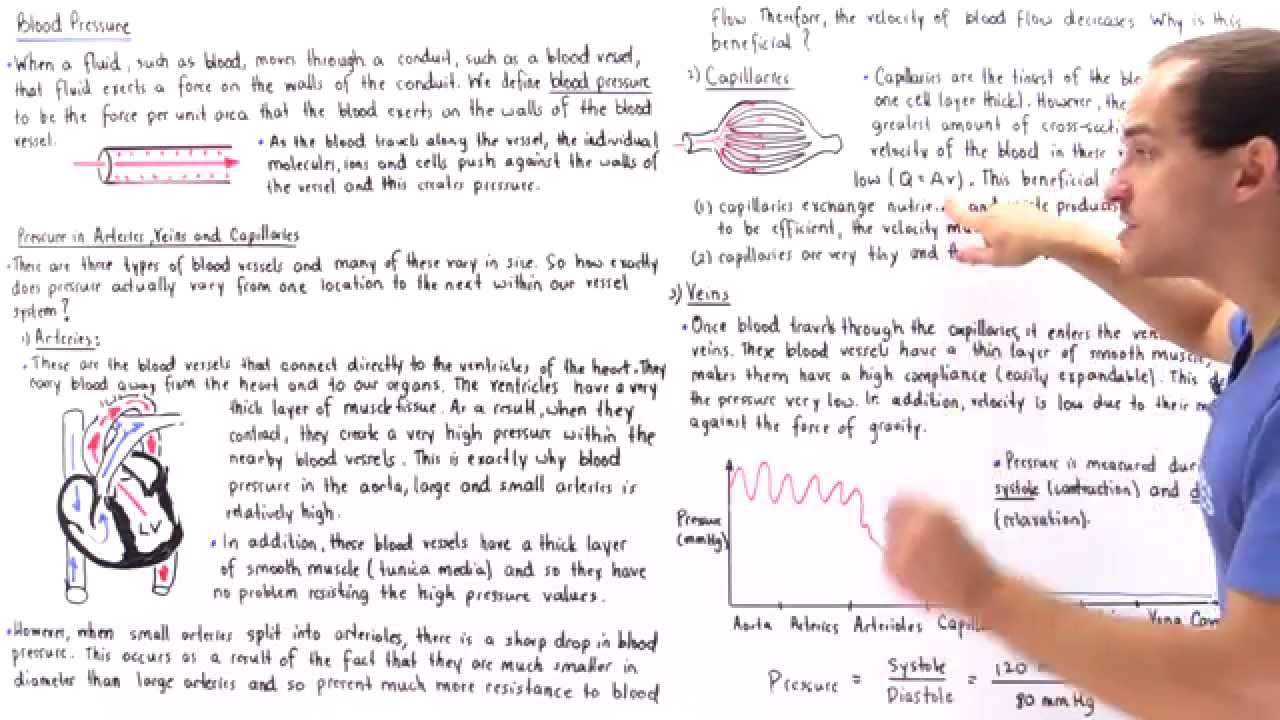 Blood Pressure
• When a fluid, such as blood, moves through a conduit, such as a blood vessel,
that fluid exerts a force on the walls of the conduit. We define blood pressure
to be the force per unit area that the blood exerts on the walls of the blood
vessel.
• As the blood travels along the vessel, the individual
molecules, ions and cells push against the walls of
the vessel and this creates pressure.
Pressure in Arteries, Veins and Capillaries
• There are three types of blood vessels and many of these vary in size. So how exactly
does pressure actually vary from one location to the next within our vessel
system?
1) Arteries:
• These are the blood vessels that connect directly to the ventricles of the heart. They
carry blood away from the heart and to our organs. The ventricles have a very
thick layer of muscle tissue. As a result, when they
contract, they create a very high pressure within the
nearby blood vessels. This is exactly why blood
pressure in the aorta, large and small arteries is
relatively high.
LV
• In addition, these blood vessels have a thick layer
of smooth muscle (tunica media) and so they have
no problem resisting the high pressure values.
• However, when small arteries split into arterioles, there is a sharp drop in blood
pressure. This occurs as a result of the fact that they are much smaller in
diameter than large arteries and so present much more resistance to blood
flow. Therefore, the velocity of blood flow decreases. Why is this
beneficial?
2) Capillaries
• Capillaries are the tiniest of the
one cell layer thick). However, the
greatest amount of
velocity of the blood in these
low (Q = Av). This beneficial
(1) capillaries exchange and products
to be efficient, the velocity
(2) capillaries are very tiny and
3) Veins
• Once blood travels through the capillaries, it enters the
veins. These blood vessels have a thin layer of smooth muscle,
makes them have a high compliance (easily expandable). This
the pressure very low. In addition, velocity is low due to their
against the force of gravity.
• Pressure is measured
systole (contraction) and
(relaxation).
Pressure
(mmHg)
Aorta Arteries Arterioles Vena
Pressure = Systole / Diastole = 120 / 80 mmHg